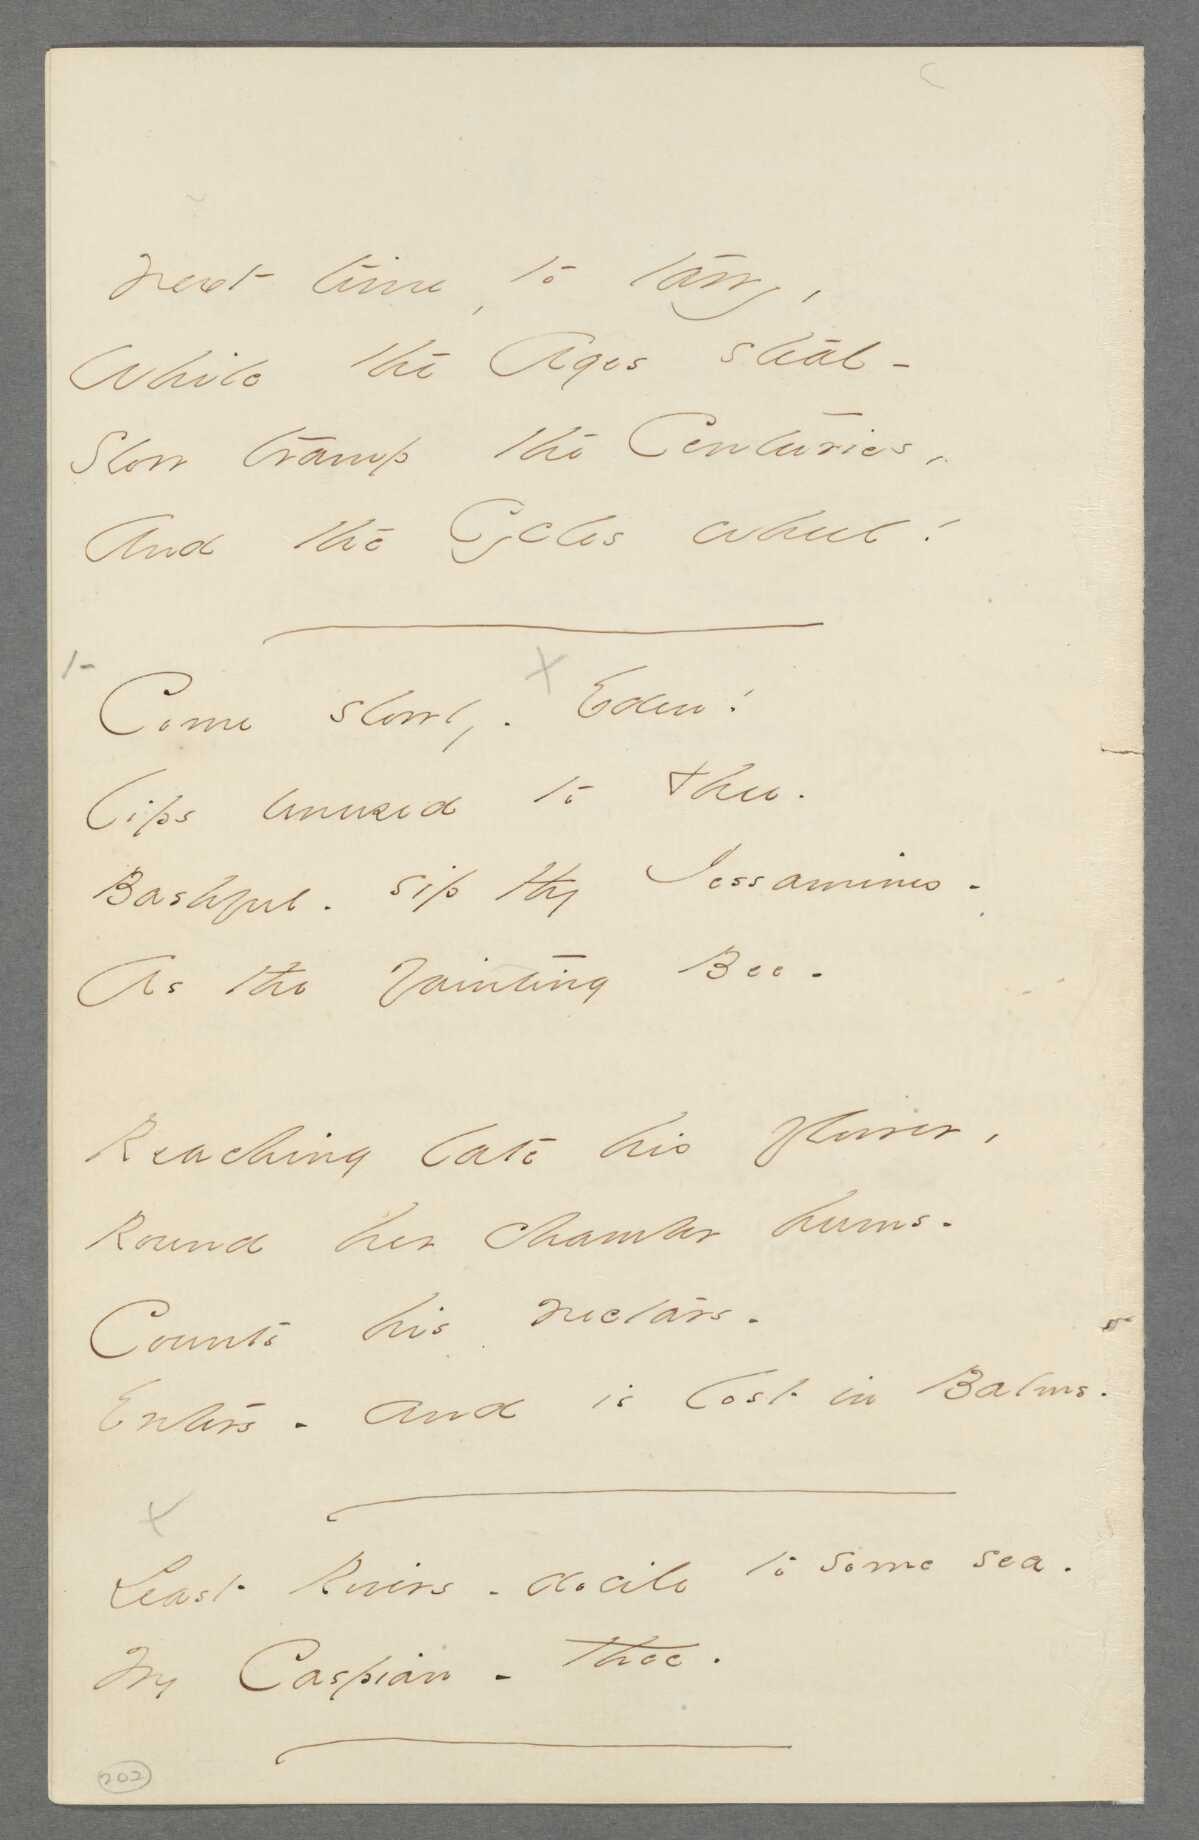 Next time, to tarry,
While the Ages steal -
Slow tramp the Centuries,
And the Cycles wheel!
1-
x
Come slowly - Eden!
Lips unused to Thee -
Bashful - sip thy Jessamines -
As the fainting Bee -
Reaching late his flower,
Round her chamber hums -
Counts his nectars -
Enters - and is lost in Balms.
x
Least Rivers - docile to some sea.
My Caspian - thee.
202